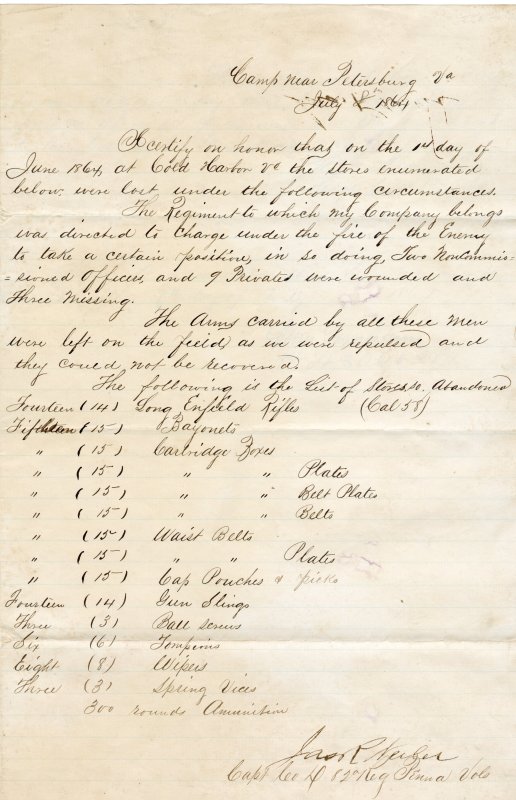 Camp near Petersburg Va
July 8th 1864
I certify on honor that on the 1st day of
June 1864, at Cold Harbor Va the stores enumerated
below, were lost under the following circumstances.
The Regiment to which my Company belongs
was directed to charge under the fire of the Enemy
to take a certain position, in so doing, Two Noncommis-
=sioned Officers, and 9 Privates were wounded and
Three Missing.
The Arms carried by all these men
were left on the field, as we were repulsed and
they could not be recovered.
The following is the List of Stores so Abandoned
Fourteen (14) Long Enfield Rifles (Cal 58)
Fifteen (15) Bayonets
" (15) Cartridge Boxes
" (15) " " Plates
" (15) " " Belt Plates
" (15) " " Belts
" (15) Waist Belts
" (15) " " Plates
" (15) Cap Pouches & picks
Fourteen (14) Gun Slings
Three (3) Ball screws
Six (6) Tompions
Eight (8) Wipers
Three (3) Spring Vices
300 rounds Amunition
Capt Co D 82d Reg Penna Vols